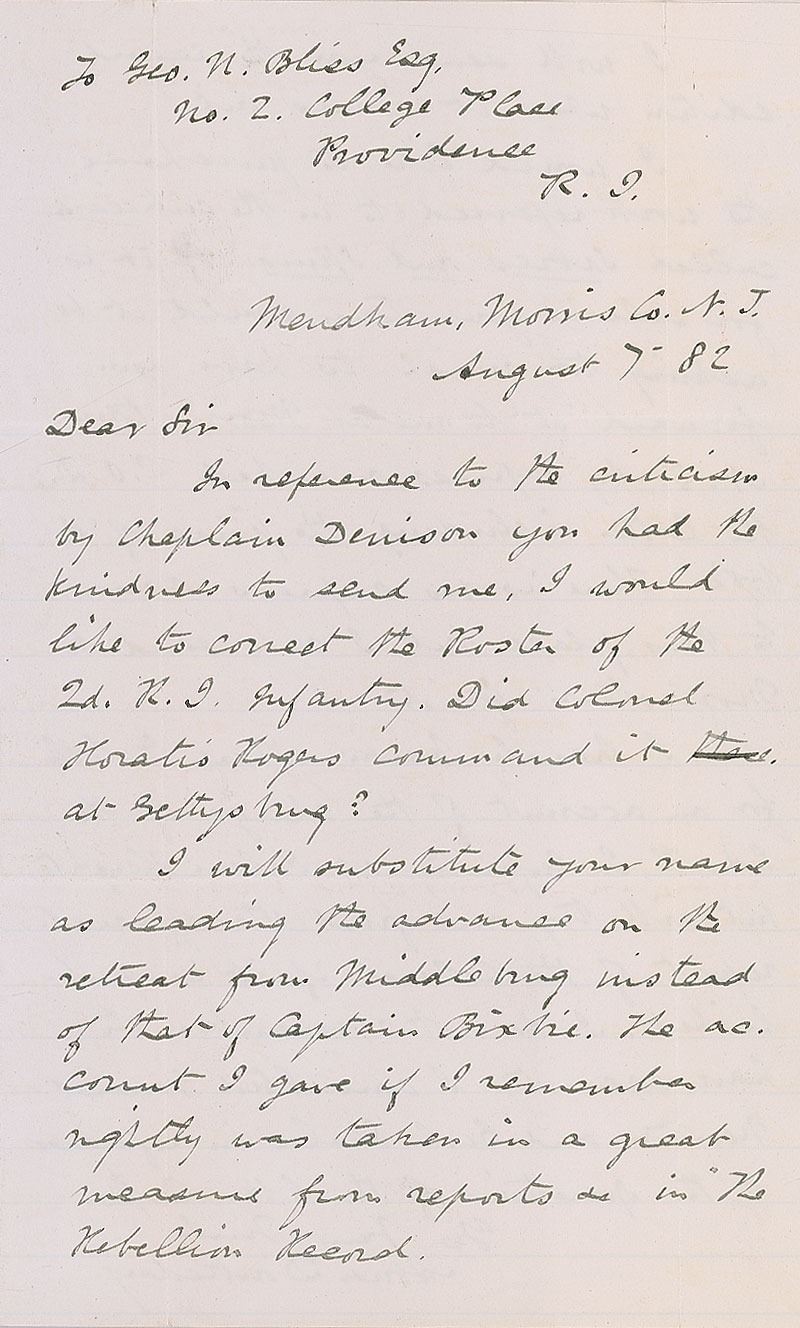 To Geo. N. Bliss Esq.
No. 2. College Place
Providence
R. I.
Mendham, Morris Co. N. J.
August 7 82
Dear Sir
In reference to the criticism
by Chaplain Denison you had the
kindness to send me, I would
like to correct the Roster of the
2d. R. I. Infantry. Did Colonel
Horatio Rogers command it
at Gettysburg?
I will substitute your name
as leading the advance on the
retreat from Middleburg instead
of that of Captain Bixbie. The ac.
count I gave if I remember
rightly was taken in a great
measure from reports &c in "The
Rebellion Record.